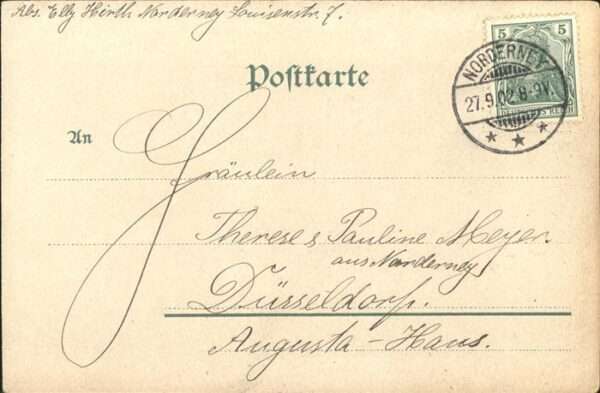 Abs. Elly Hirth Norderney Louisenstr. 7.
5 5
NORDERNEY
27.9.02.8-9V.
DEUTSCHES REICH
Postkarte
An
Fräulein
Therese & Pauline Meyer
aus Norderney
Düsseldorf.
Augusta-Haus.